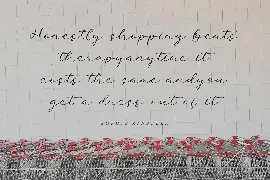 Honestly shopping beats
therapyanytine it
costs the same andyou
get a dress out of it